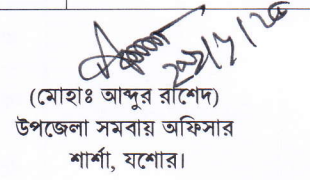 (মোহাঃ আব্দুর রাশেদ)
উপজেলা সমবায় অফিসার
শার্শা, যশোর।